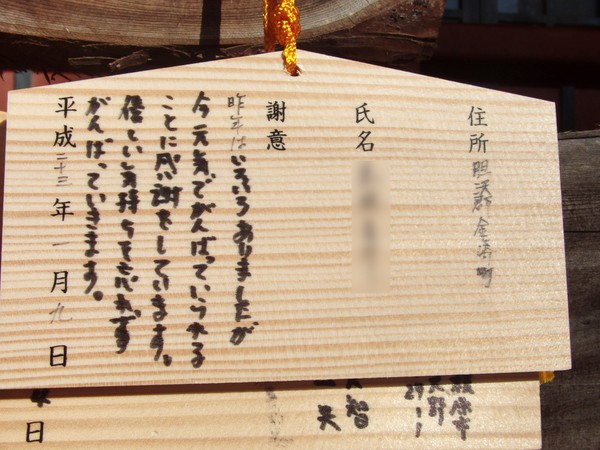 住所 胆沢郡金ケ崎町
氏名
謝意
昨年はいろいろありましたが
今元気でがんばっていられる
ことに感謝をしています。
優しい気持ちを忘れず
がんばっていきます。
平成二十三年一月九日
原市
智
矢
日